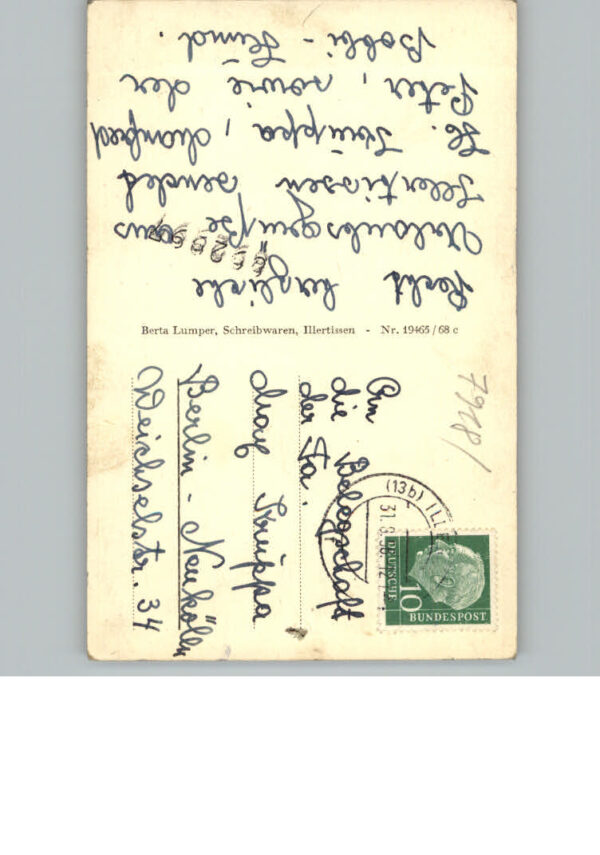 Recht herzliche
Urlaubsgrüße aus
Illertissen sendet
H. Kruppa, Manfred
Peter, sowie der
Bobbi - Hund.
Berta Lumper, Schreibwaren, Illertissen - Nr. 19465/68 c
An
die Belegschaft
der Fa.
Max Kruppa
Berlin - Neukölln
Weichselstr. 34
(13b) ILL
31.8.58.12
DEUTSCHE
BUNDESPOST
10